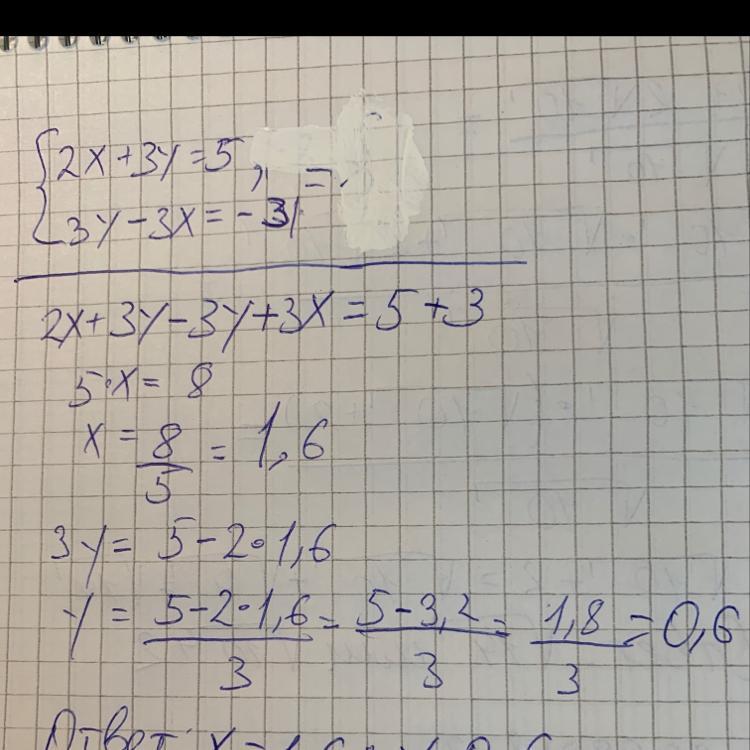 2x+3y=5, =
3y-3x=-3
2x+3y-3y+3x=5+3
5·x= 8
x = 8/5 = 1,6
3y= 5-2·1,6
y = 5-2·1,6/3 = 5-3,2/3 = 1,8/3 = 0,6
Ответ: x=1,6